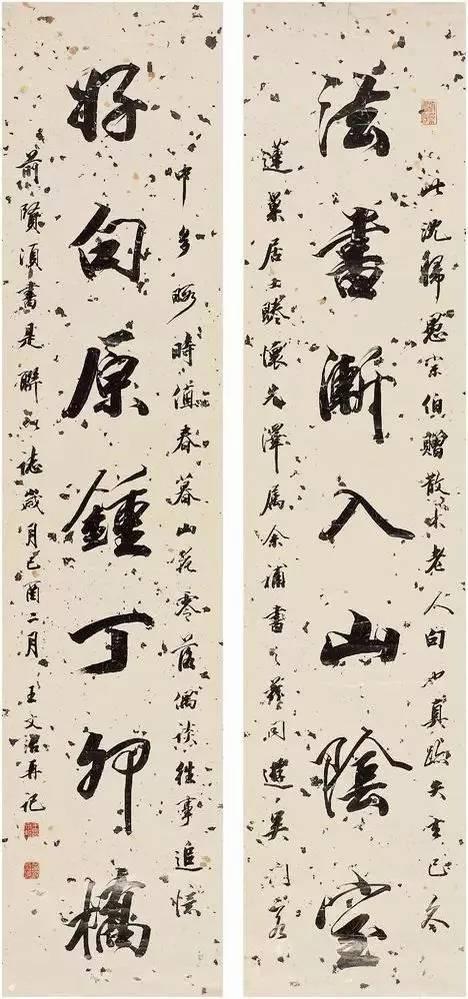 法書漸入山陰室
此沈歸愚宗伯贈散木老人句也真跡失去已久
蓬巢居士睠懷先澤屬余補書之同遊吳門客
好句原鍾丁卯橋
中多暇時值春暮山花零落偶談往事追憶
前賢須書是聯以誌歲月己酉二月王文治再記